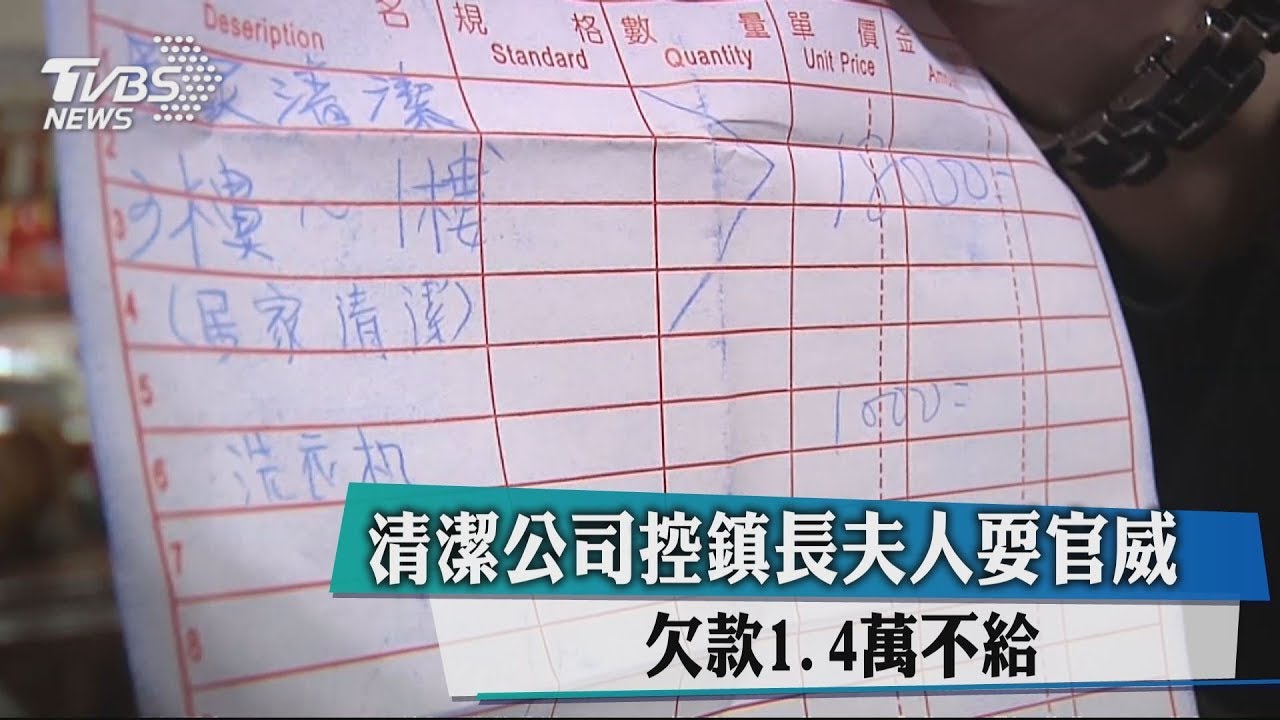 TVBS
NEWS
名 規格 數量 單價 金
Deseription Standard Quantity Unit Price
清潔
2
3 樓~1樓 18000-
4 (居家清潔)
5
1000=
6 洗衣机
7
8
清潔公司控鎮長夫人耍官威
欠款1.4萬不給